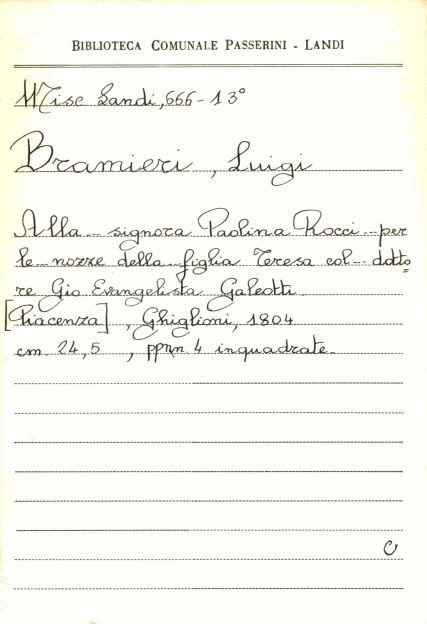 BIBLIOTECA COMUNALE PASSERINI - LANDI
Misc Landi, 666 - 13°
Bramieri, Luigi
Alla signora Paolina Rocci per
le nozze della figlia Teresa col dotto=
re Gio Evangelista Galeotti.
[Piacenza], Ghiglioni, 1804
cm. 24,5, ppnn. 4 inquadrate.